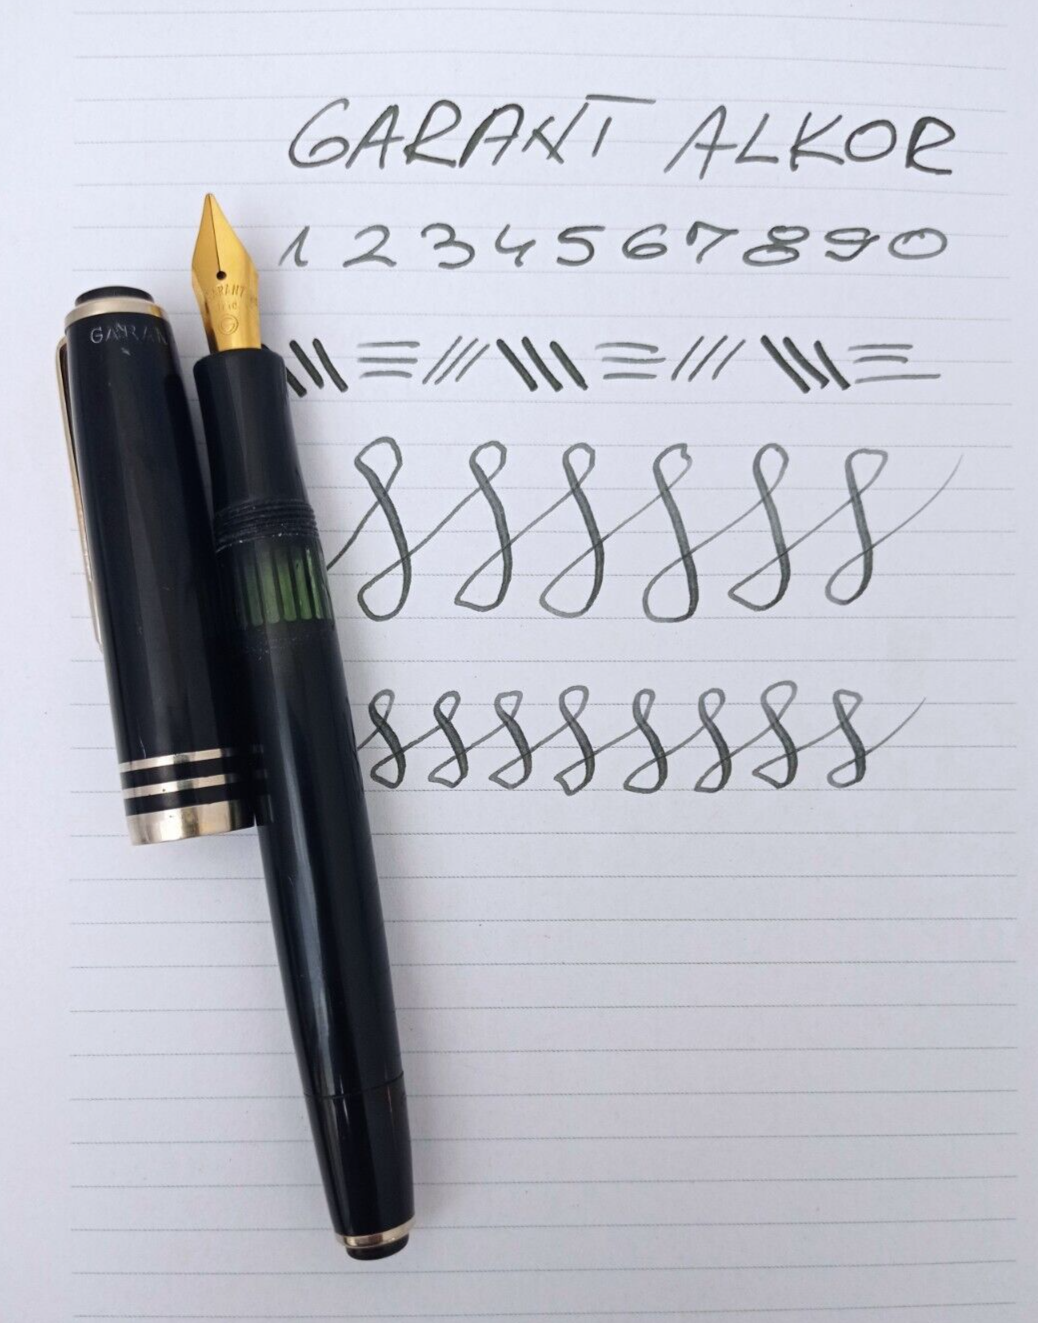 GARANT ALKOR
1 2 3 4 5 6 7 8 9 0
GARAN
GARANT